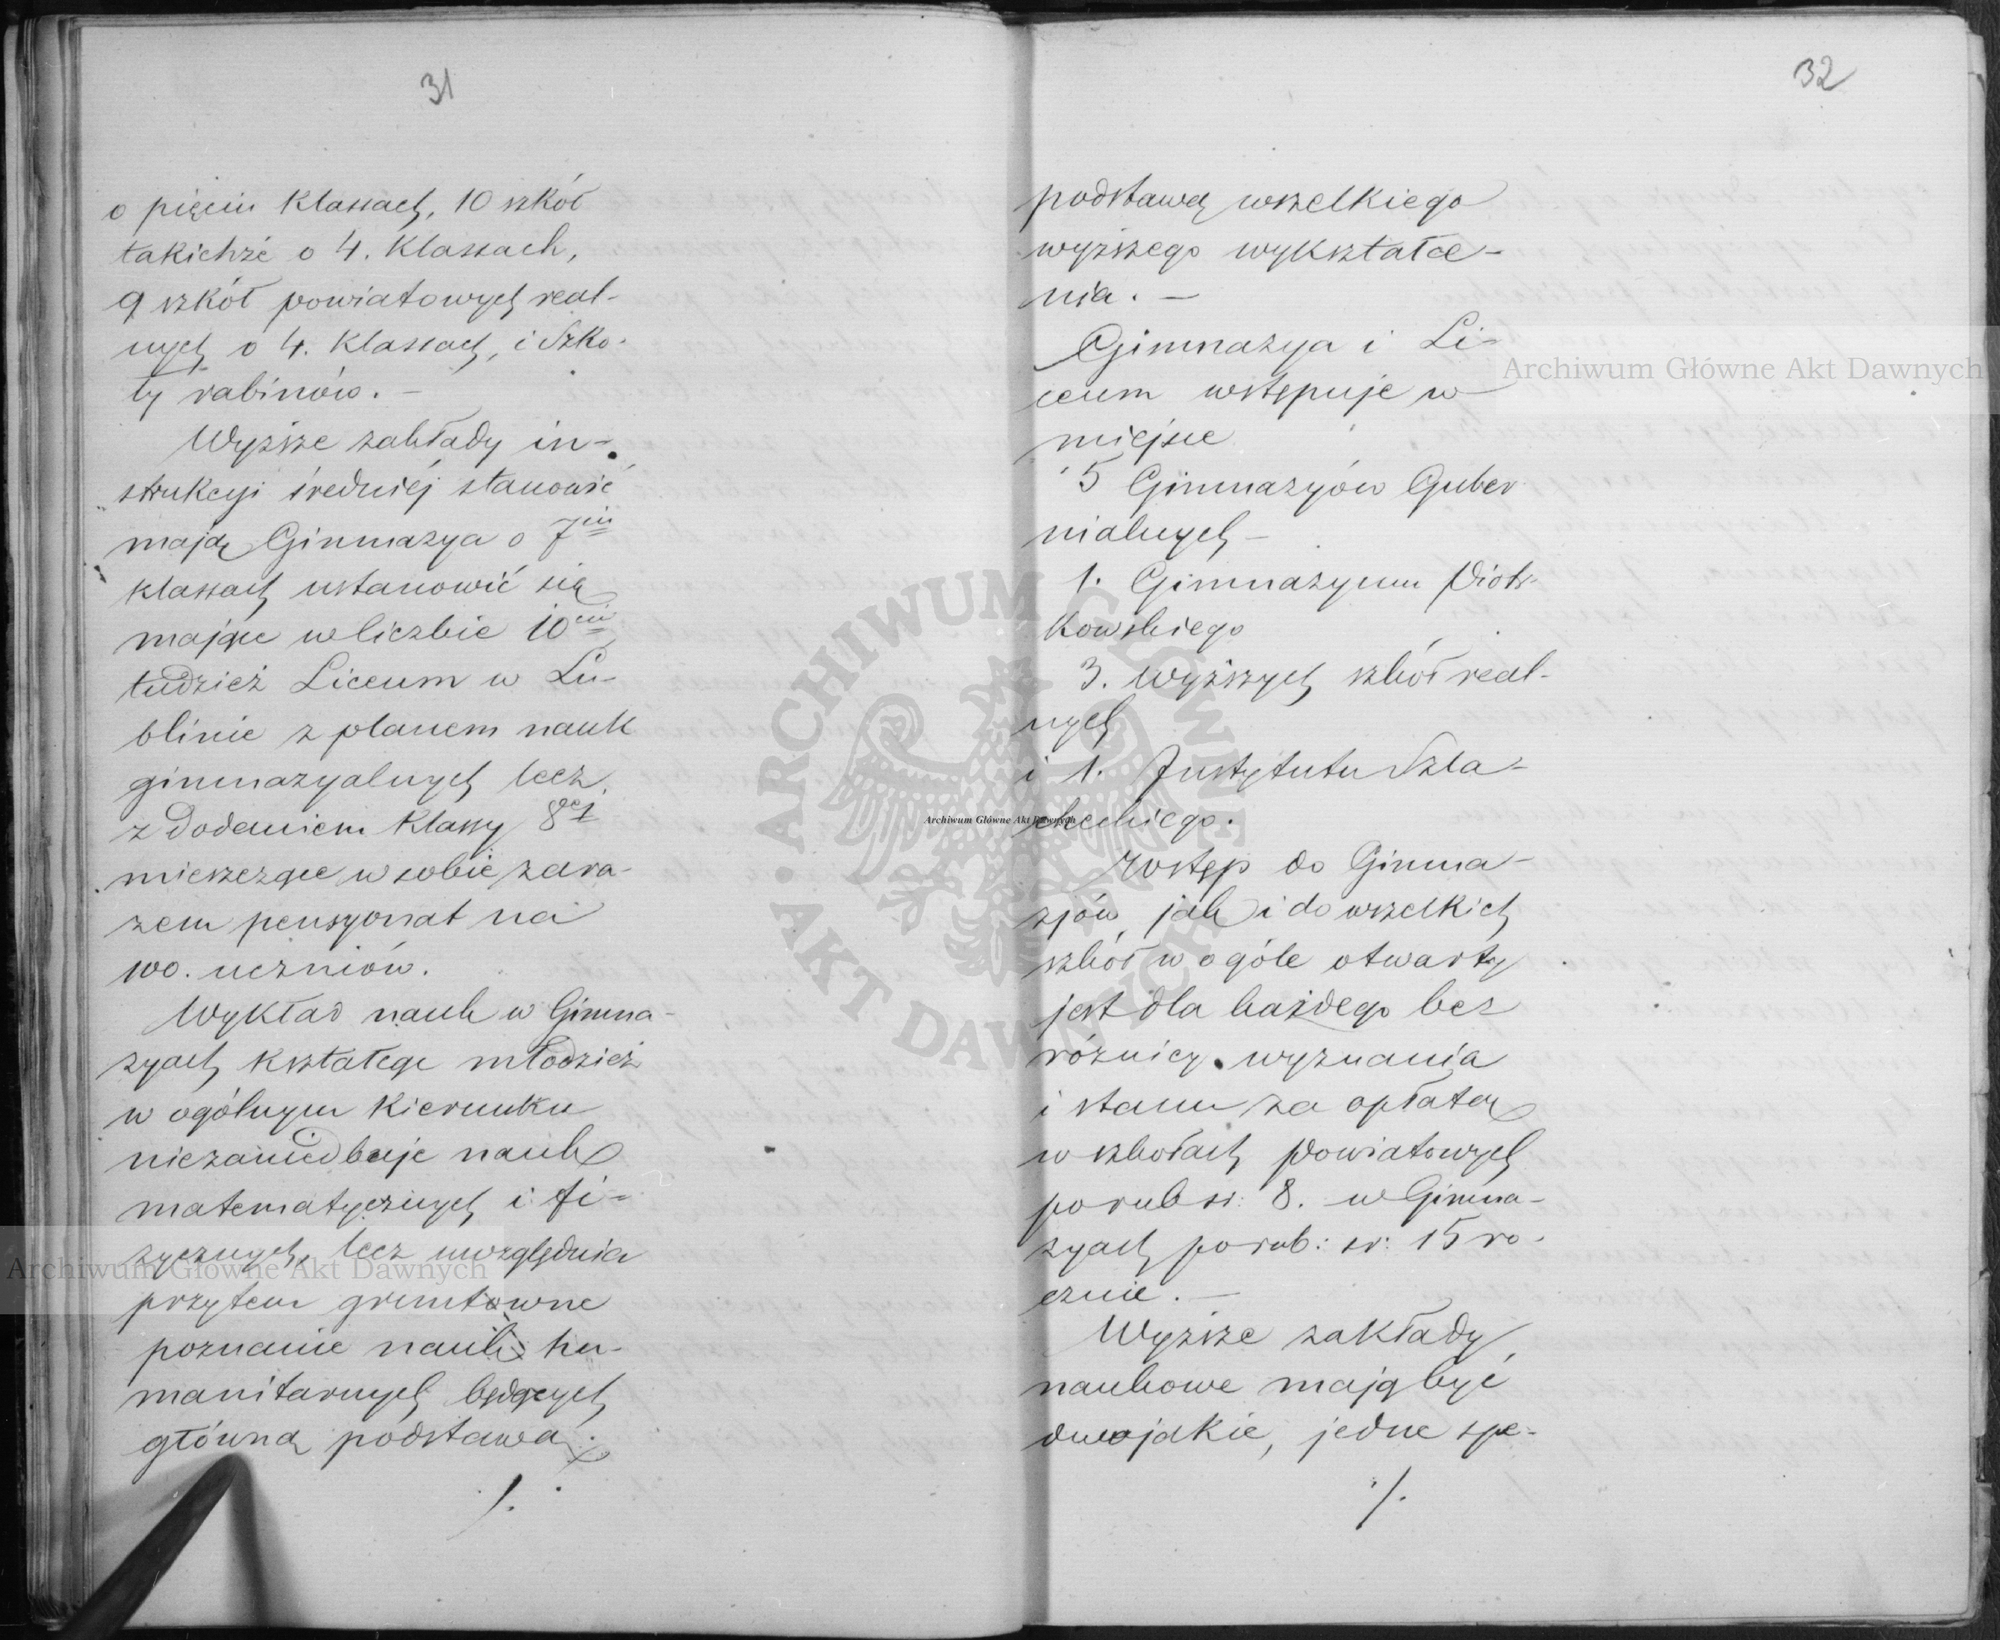 31
o pięciu Klassach, 10 szkół
takichże o 4. Klassach,
9 szkół powiatowych real-
nych o 4. Klassach, i Szko-
ły rabinów. —
Wyższe zakłady in-
strukcyi średniéj stanowić
mają Gimnazya o 7iu
klassach ustanowić się
mające w liczbie 10ciu
tudzież Liceum w Lu-
blinie z planem nauk
gimnazyalnych lecz
z dodaniem Klassy 8éj
mieszczące w sobie zara-
zem pensyonat na
100. uczniów.
Wykład nauk w Gimna-
zyach kształcąc młodzież
w ogólnym Kierunku
niezaniedbuje nauk
matematycznych i fi-
zycznych, lecz uwzględnia
przytem gruntowne
poznanie nauk hu-
manitarnych będących
główną podstawą
./.
32
podstawą wszelkiego
wyższego wykształce-
nia. —
Gimnazya i Li-
ceum wstępuje w
miejsce
5 Gimnazyów Guber
nialnych —
1. Gimnazyum Piotr-
kowskiego
3. Wyższych szkół real-
nych
i 1. Instytutu Szla-
checkiego.
Wstęp do Gimna-
zjów, jak i do wszelkich
szkół w ogóle otwarty
jest dla każdego bez
różnicy wyznania
i stanu za opłatą
w szkołach powiatowych
po rub sr: 8. w Gimna-
zyach po rub: sr: 15 ro-
cznie. —
Wyższe zakłady
naukowe mają być
dwojakie, jedne spe-
./.
Archiwum Główne Akt Dawnych
Archiwum Główne Akt Dawnych
Archiwum Główne Akt Dawnych
ARCHIWUM GŁÓWNE AKT DAWNYCH